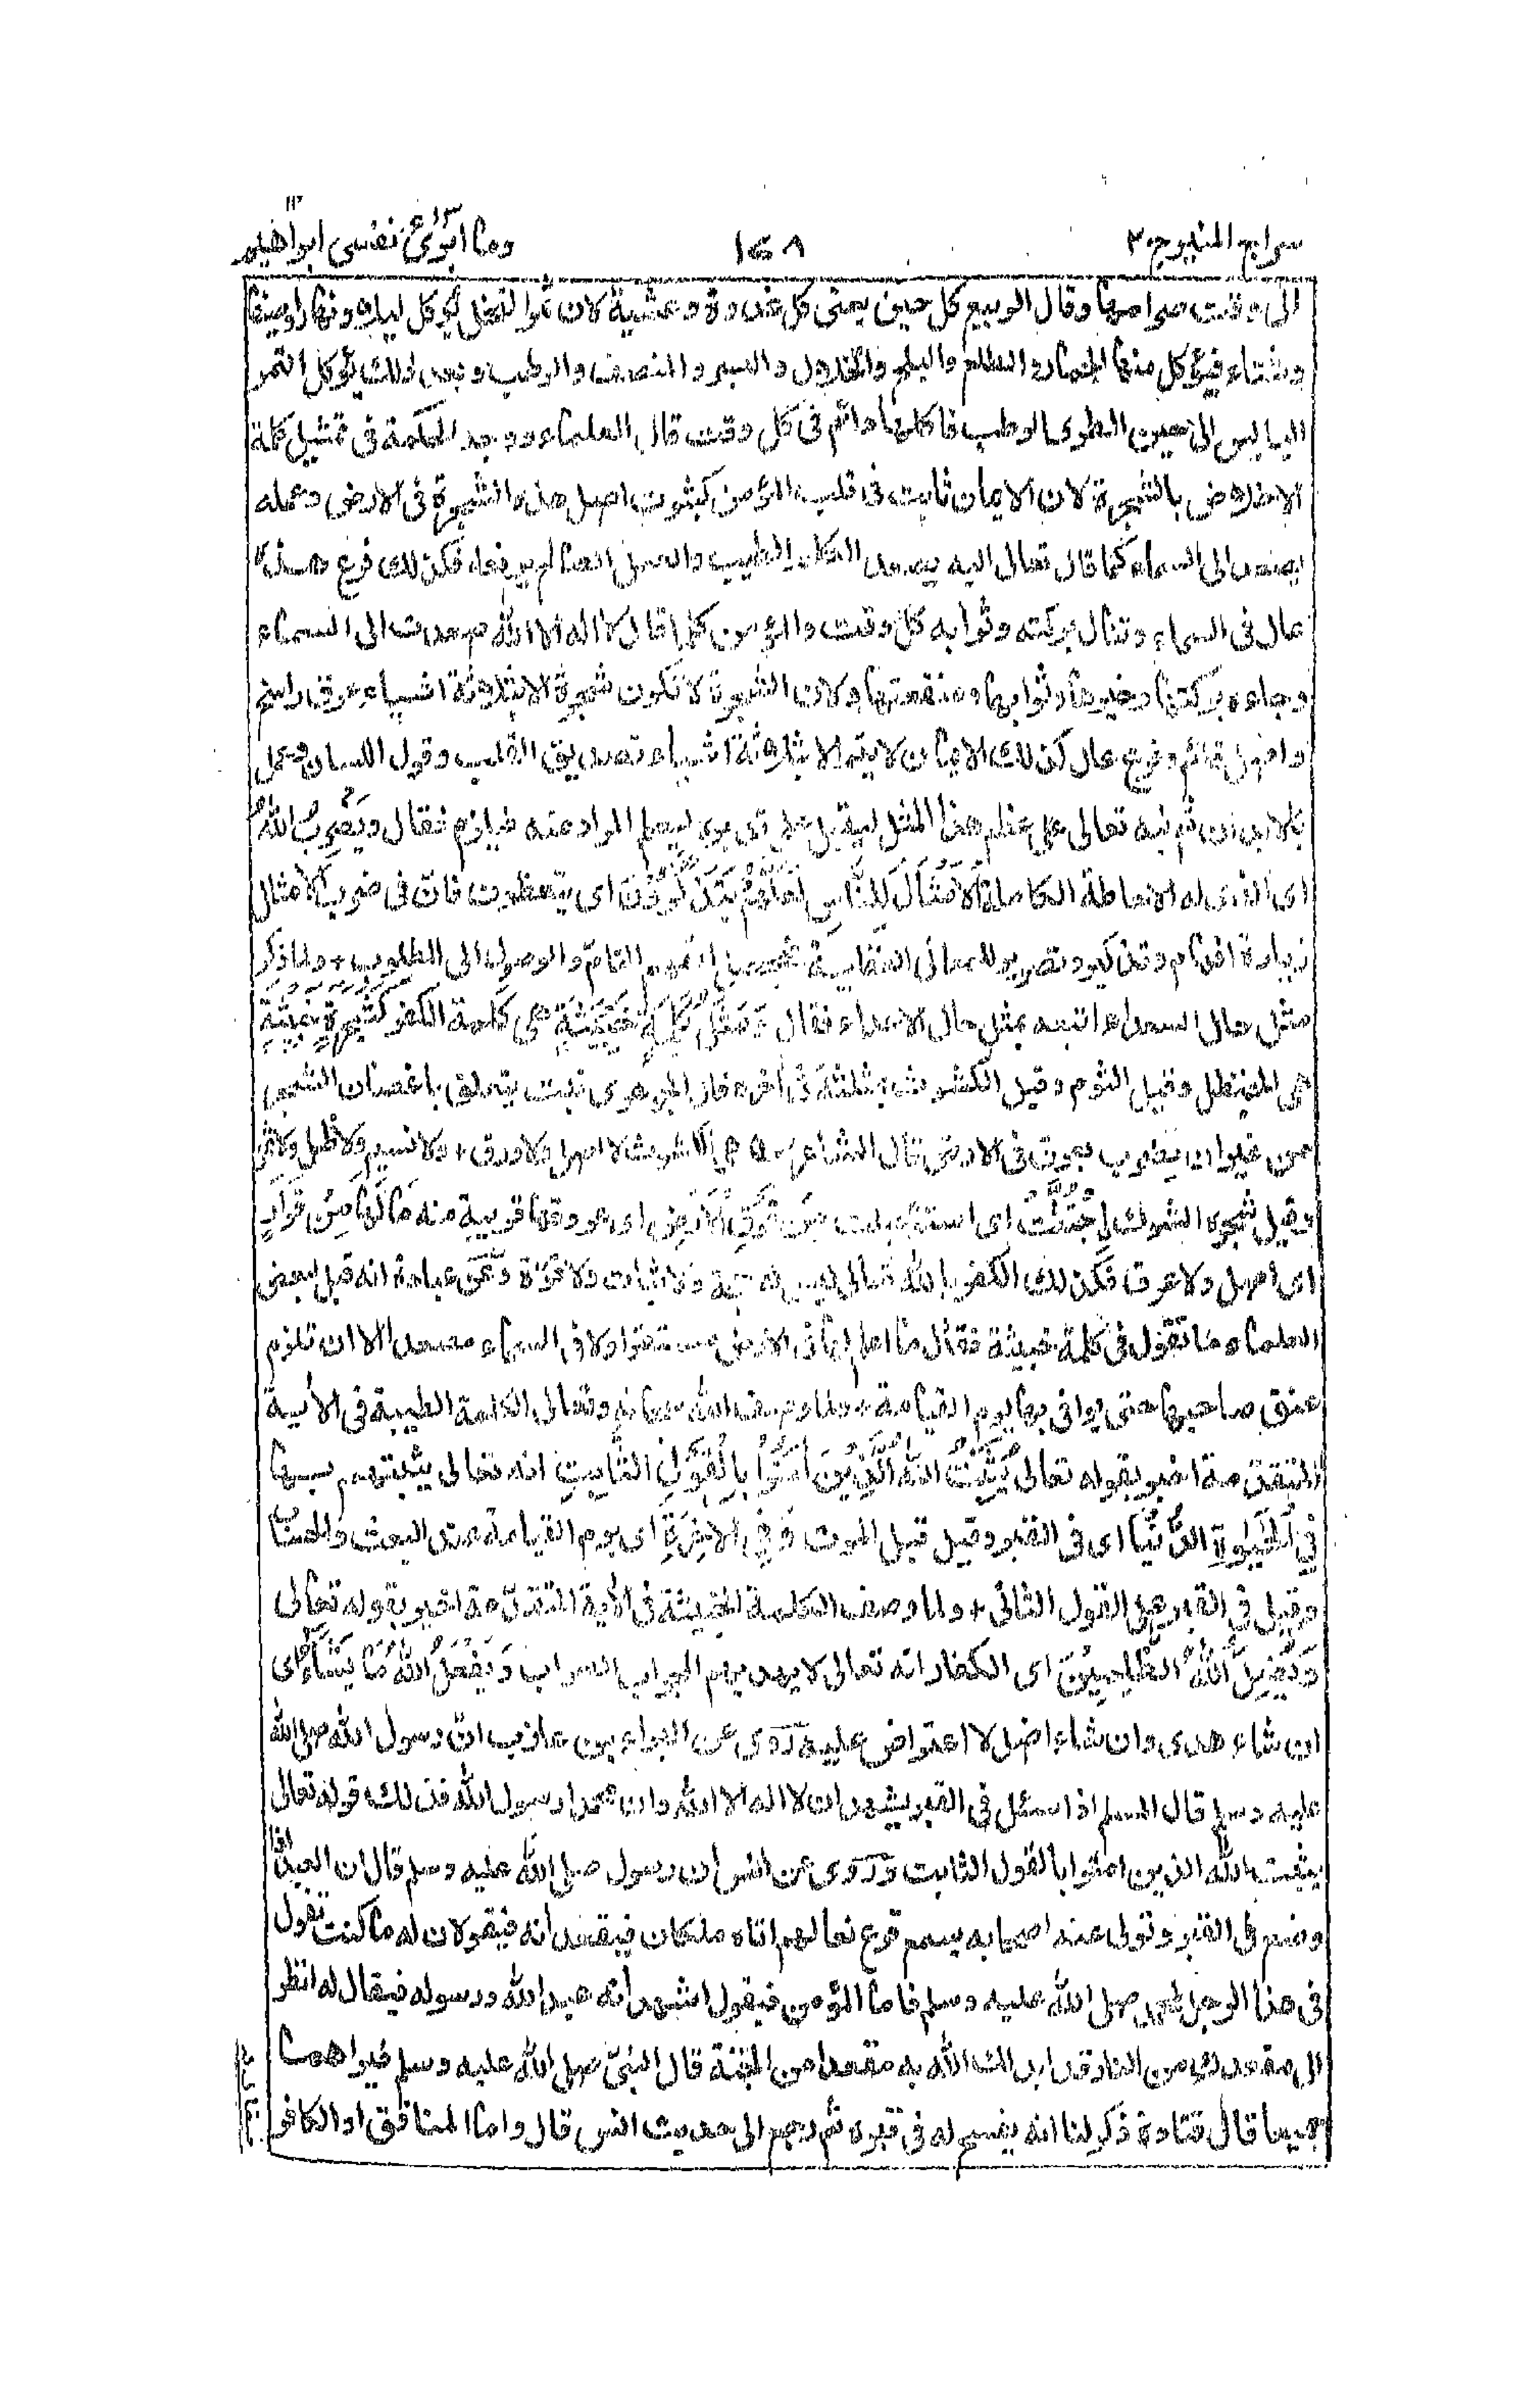 سراج المنير ج ٢
١٧٨
وما ابرئ نفسى ابراهيم
الى وقت صرامها وقال الربيع كل حين يعنى كل غدوة وعشية لان ثمر النخل يؤكل ليلا ونهارا وصيفا
وشتاء فيؤكل منها الجمار والطلع والبلح والخلال والبسر والمنصف والرطب وبعد ذلك يؤكل التمر
اليابس الى حين الطرى الرطب فاكلها دائم فى كل وقت قال العلماء ووجه الحكمة فى تمثيل كلمة
الاخلاص بالشجرة لان الايمان ثابت فى قلب المؤمن كثبوت اصل هذه الشجرة فى الارض وعمله
يصعد الى السماء كما قال تعالى اليه يصعد الكلم الطيب والعمل الصالح يرفعه فكذلك فرع هذه
عال فى السماء وتنال بركته وثوابه كل وقت والمؤمن كلما قال لا اله الا الله صعدت الى السماء
وجاءه بركتها وخيرها وثوابها ومنفعتها ولان الشجرة لا تكون شجرة الا بثلاثة اشياء عرق راسخ
واصل قائم وفرع عال كذلك الايمان لا يتم الا بثلاثة اشياء تصديق القلب وقول اللسان وعمل
بالابدان ثم نبه تعالى على عظم هذا المثل ليقبل على تدبره ليعلم المراد منه فيلزم فقال وَيَضْرِبُ اللّٰهُ
اى الذى له الاحاطة الكاملة الْاَمْثَالَ لِلنَّاسِ لَعَلَّهُمْ يَتَذَكَّرُوْنَ اى يتعظون فان فى ضرب الامثال
زيادة افهام وتذكير وتصوير للمعانى العقلية فيحصل الفهم التام والوصول الى المطلوب + ولما ذكر
مثل حال السعداء اتبعه بمثل حال الاعداء فقال وَمَثَلُ كَلِمَةٍ خَبِيْثَةٍ هى كلمة الكفر كَشَجَرَةٍ خَبِيْثَةٍ
هى الحنظل وقيل الثوم وقيل الكشوث بمثلثة فى اخره قال الجوهرى نبت يتعلق باغصان الشجر
من غير ان يضرب بعرق فى الارض قال الشاعر هى الكشوث لا اصل ولا ورق + ولا نسيم ولا ظل ولا ثمر
وقيل شجرة الشوك اجْتُثَّتْ اى استؤصلت مِنْ فَوْقِ الْاَرْضِ اى عروقها قريبة منه مَا لَهَا مِنْ قَرَارٍ
اى اصل ولا عرق فكذلك الكفر بالله تعالى ليس له حجة ولا ثبات ولا قوة وعن عبادة انه قيل لبعض
العلماء ما تقول فى كلمة خبيثة فقال ما اعلم لها فى الارض مستقرا ولا فى السماء مصعدا الا ان تلزم
عنق صاحبها حتى يوافى بها يوم القيامة + ولما وصف الله سبحانه وتعالى الكلمة الطيبة فى الأية
المتقدمة اخبر بقوله تعالى يُثَبِّتُ اللّٰهُ الَّذِيْنَ اٰمَنُوْا بِالْقَوْلِ الثَّابِتِ انه تعالى يثبتهم بها
فِى الْحَيٰوةِ الدُّنْيَا اى فى القبر وقيل قبل الموت وَفِى الْاٰخِرَةِ اى يوم القيامة عند البعث والحساب
وقيل فى القبر على القول الثانى + ولما وصف الكلمة الخبيثة فى الأية المتقدمة اخبر بقوله تعالى
وَيُضِلُّ اللّٰهُ الظّٰلِمِيْنَ اى الكفار انه تعالى لا يهديهم للجواب الصواب وَيَفْعَلُ اللّٰهُ مَا يَشَآءُ اى
ان شاء هدى وان شاء اضل لا اعتراض عليه روى عن البراء بن عازب ان رسول الله صلى الله
عليه وسلم قال المسلم اذا سئل فى القبر يشهد ان لا اله الا الله وان محمدا رسول الله فذلك قوله تعالى
يثبت الله الذين امنوا بالقول الثابت وروى عن انس ان رسول صلى الله عليه وسلم قال ان العبد اذا
وضع فى القبر وتولى عنه اصحابه يسمع قرع نعالهم اتاه ملكان فيقعدانه فيقولان له ما كنت تقول
فى هذا الرجل لمحمد صلى الله عليه وسلم فاما المؤمن فيقول اشهد انه عبد الله ورسوله فيقال له انظر
الى مقعدك من النار قد ابدلك الله به مقعدا من الجنة قال النبى صلى الله عليه وسلم فيراهما
جميعا قال قتادة ذكر لنا انه يفسح له فى قبره ثم رجع الى حديث انس قال واما المنافق او الكافر